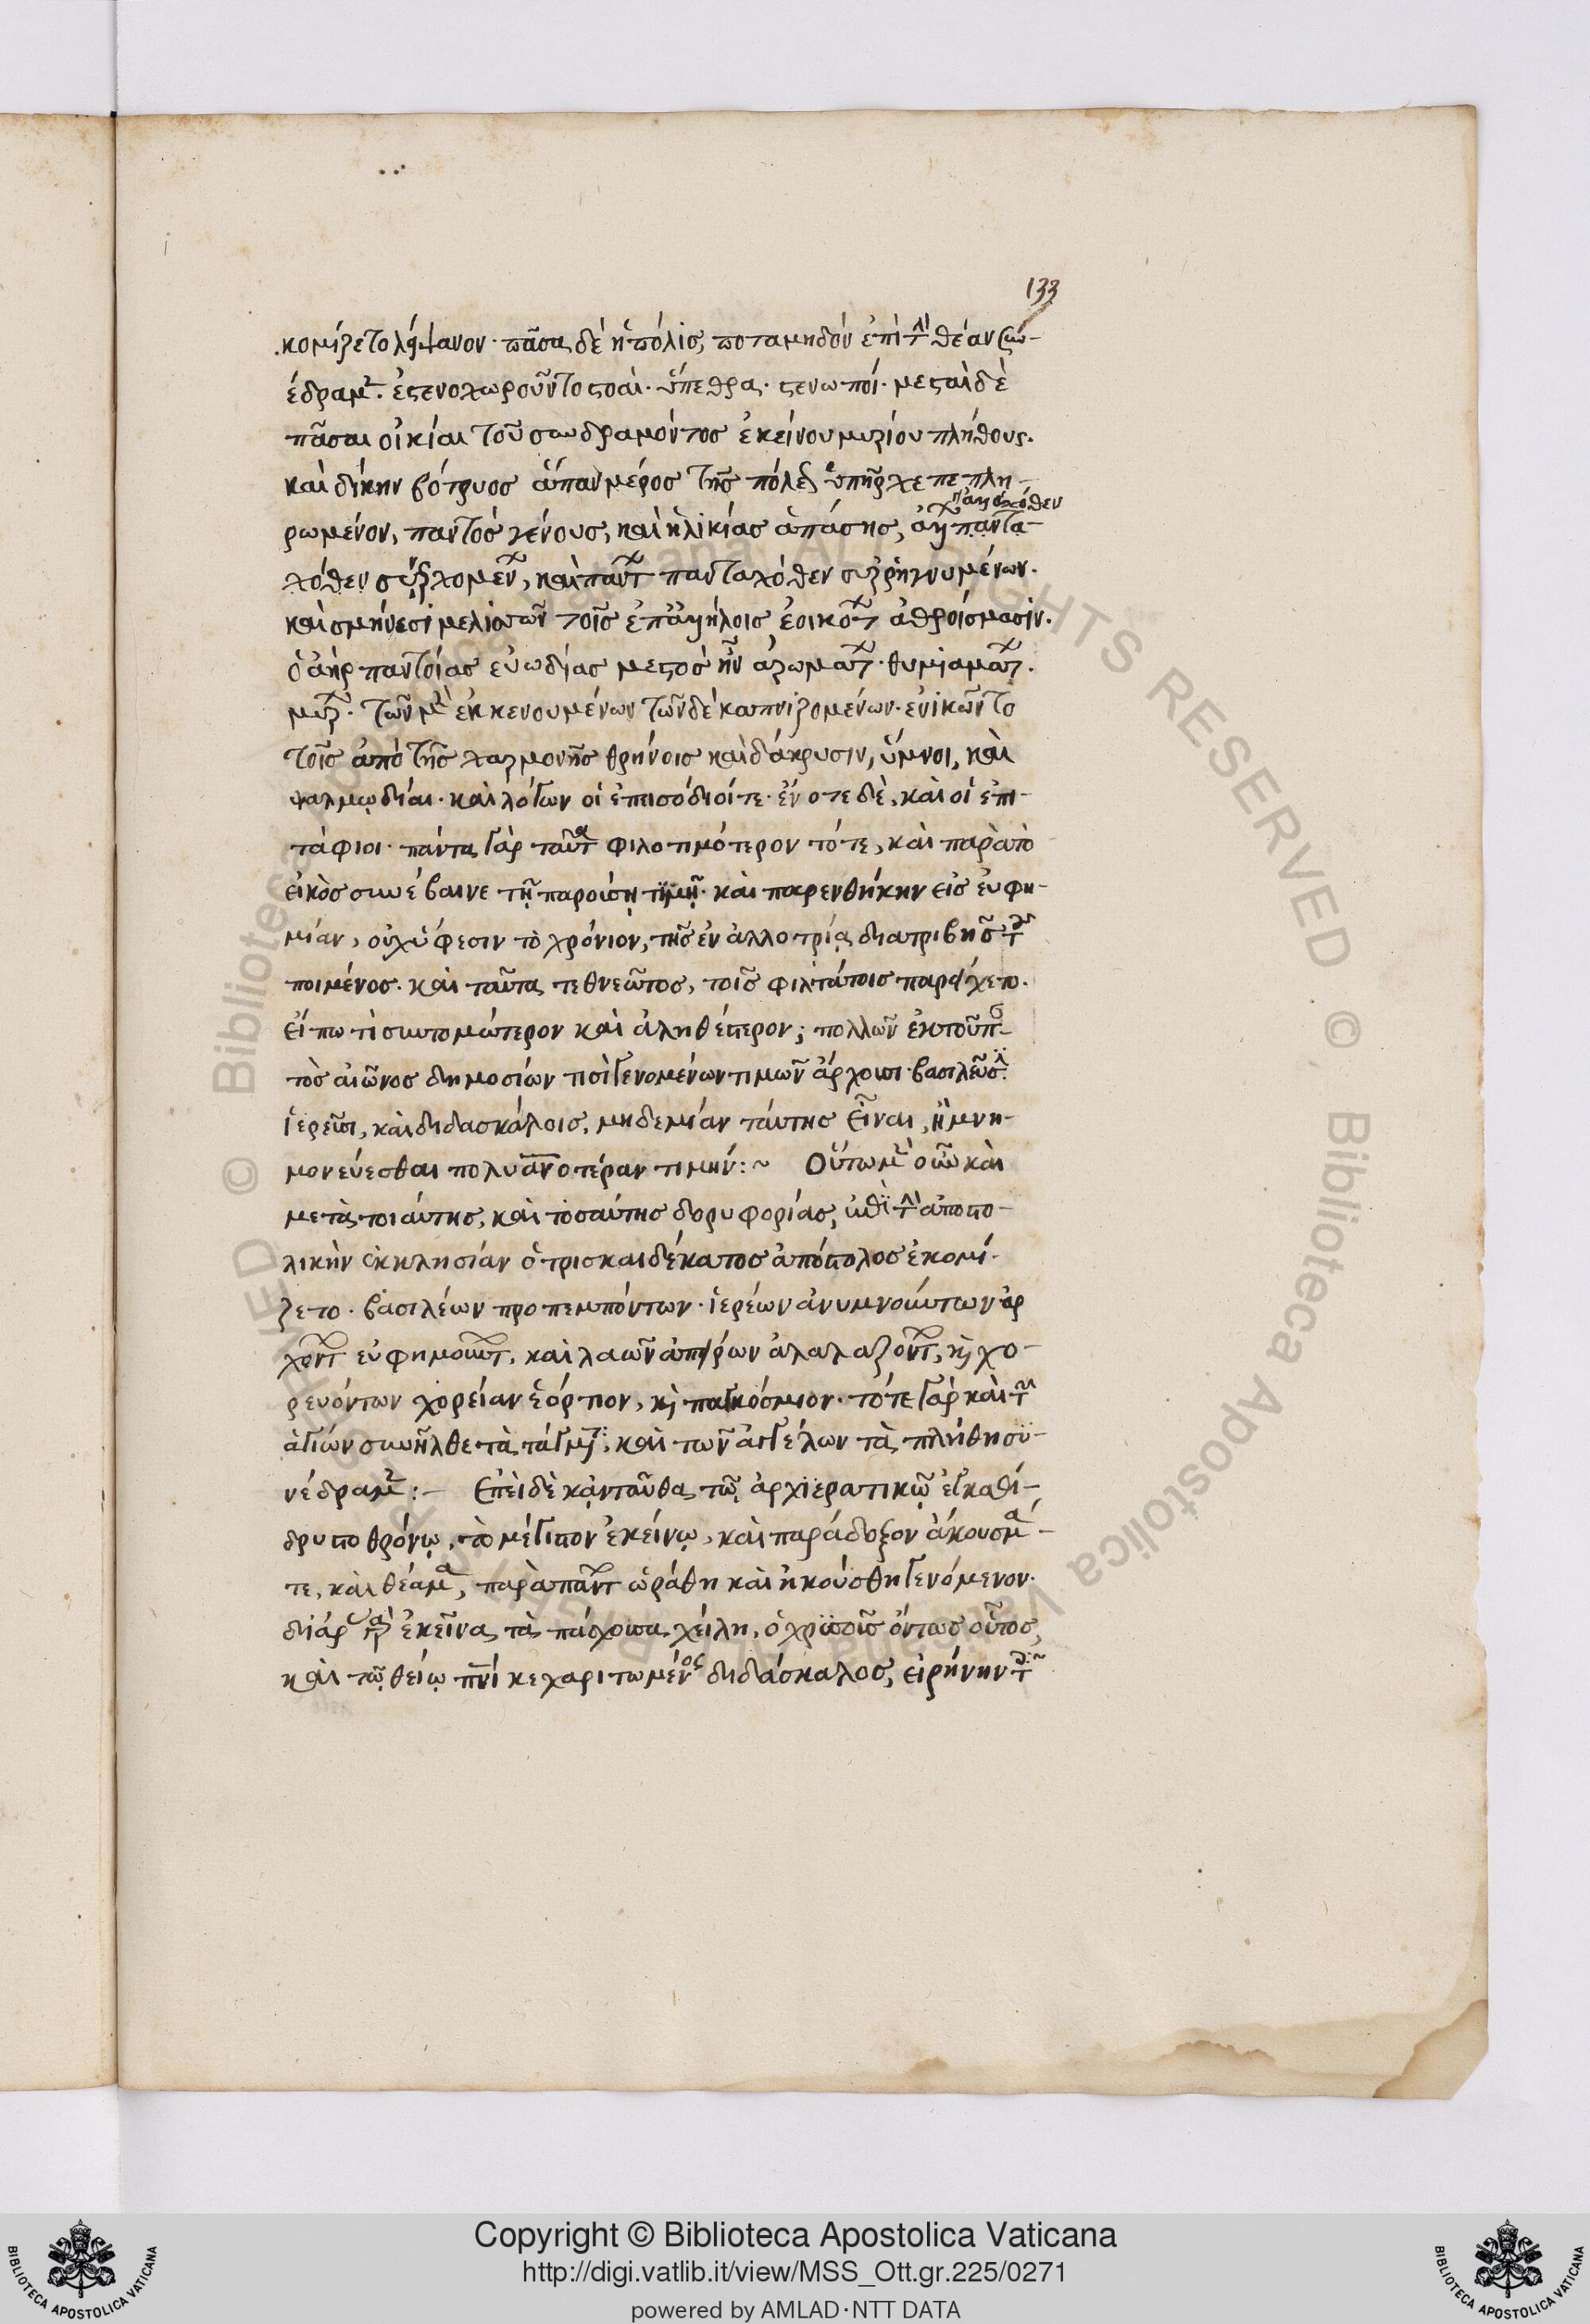 133
κομίζετο λείψανον· πᾶσα δὲ ἡ πόλις, ποταμηδὸν ἐπὶ τὴν θέαν συν-
έδραμε. ἐστενοχωροῦντο στοαί· ὕπεθρα· στενωποί· μεσταὶ δὲ
πᾶσαι οἰκίαι τοῦ συνδραμόντος ἐκείνου μυρίου πλήθους.
καὶ δίκην βότρυος ἅπαν μέρος τῆς πόλεως ὑπῆρχε πεπλη-
ρωμένον, παντὸς γένους, καὶ ἡλικίας ἁπάσης, πάντα-
χόθεν συνερχομένων, καὶ πάντων πανταχόθεν συρρηγνυμένων.
καὶ σμήνεσι μελισσῶν τοῖς ἐπαλλήλοις ἐοικότων ἀθροίσμασιν.
ὁ ἀὴρ παντοίας εὐωδίας μεστὸς ἦν ἀρωμάτων· θυμιαμάτων.
μύρων· τῶν μὲν ἐκκενουμένων τῶν δὲ καπνιζομένων· ἐνικῶντο
τοῖς ἀπὸ τῆς χαρμονῆς θρήνοις καὶ δάκρυσιν, ὕμνοι, καὶ
ψαλμῳδίαι· καὶ λόγων οἱ ἐπεισόδιοί τε· ἔν ὅτε δὲ, καὶ οἱ ἐπι-
τάφιοι· πάντα γὰρ ταῦτα φιλοτιμότερον τότε, καὶ παρὰ τὸ
εἰκὸς συνέβαινε τῇ παρούσῃ τιμῇ· καὶ παρενθήκην εἰς εὐφη-
μίαν, οὐχ ὕφεσιν τὸ χρόνιον, τῆς ἐν ἀλλοτρίᾳ διατριβῆς τοῦ
ποιμένος. καὶ ταῦτα τεθνεῶτος, τοῖς φιλτάτοις παρείχετο.
εἴπω τὶ συντομώτερον καὶ ἀληθέστερον; πολλῶν ἐκ τοῦ παν-
τὸς αἰῶνος δημοσίων τισὶ γενομένων τιμῶν ἄρχουσι· βασιλεῦσιν.
ἱερεῦσι, καὶ διδασκάλοις, μηδεμίαν ταύτης εἶναι, ἢ μνη-
μονεύεσθαι πολυανοτέραν τιμήν:~ Οὕτω μὲν οὖν καὶ
μετὰ τοιαύτης, καὶ τοσαύτης δορυφορίας, ἐπὶ τὴν ἀποστο-
λικὴν ἐκκλησίαν ὁ τρισκαιδέκατος ἀπόστολος ἐκομί-
ζετο· βασιλέων προπεμπόντων· ἱερέων ἀνυμνούντων ἀρ
χόντων εὐφημούντων, καὶ λαῶν ἀπείρων ἀλαλαζόντων, καὶ χο-
ρευόντων χορείαν ἑόρτιον, καὶ παγκόσμιον· τότε γὰρ καὶ τῶν
ἁγίων συνῆλθε τὰ τάγματα, καὶ τῶν ἀγγέλων τὰ πλήθη συ-
νέδραμε:- Ἐπεὶ δὲ κἀνταῦθα τῷ ἀρχιερατικῷ ἐγκαθί-
δρυτο θρόνῳ, τὸ μέγιστον ἐκείνῳ, καὶ παράδοξον ἄκουσμα-
τε, καὶ θέαμα, παρὰ πάντων ὡράθη καὶ ἠκούσθη γενόμενον.
διάρας γὰρ ἐκεῖνα τὰ πάσχοισα χείλη, ὁ χρυσοῦς ὄντως οὗτος,
καὶ τῷ θείῳ πνι κεχαριτωμένος διδάσκαλος, εἰρήνην τοῖς
Copyright © Biblioteca Apostolica Vaticana
http://digi.vatlib.it/view/MSS_Ott.gr.225/0271
powered by AMLAD·NTT DATA